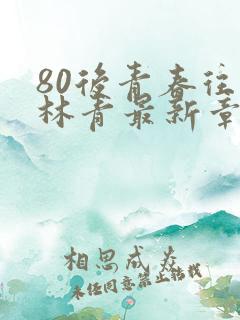 80後青春往
林青最新章
相思成灾
未经同意禁止转载